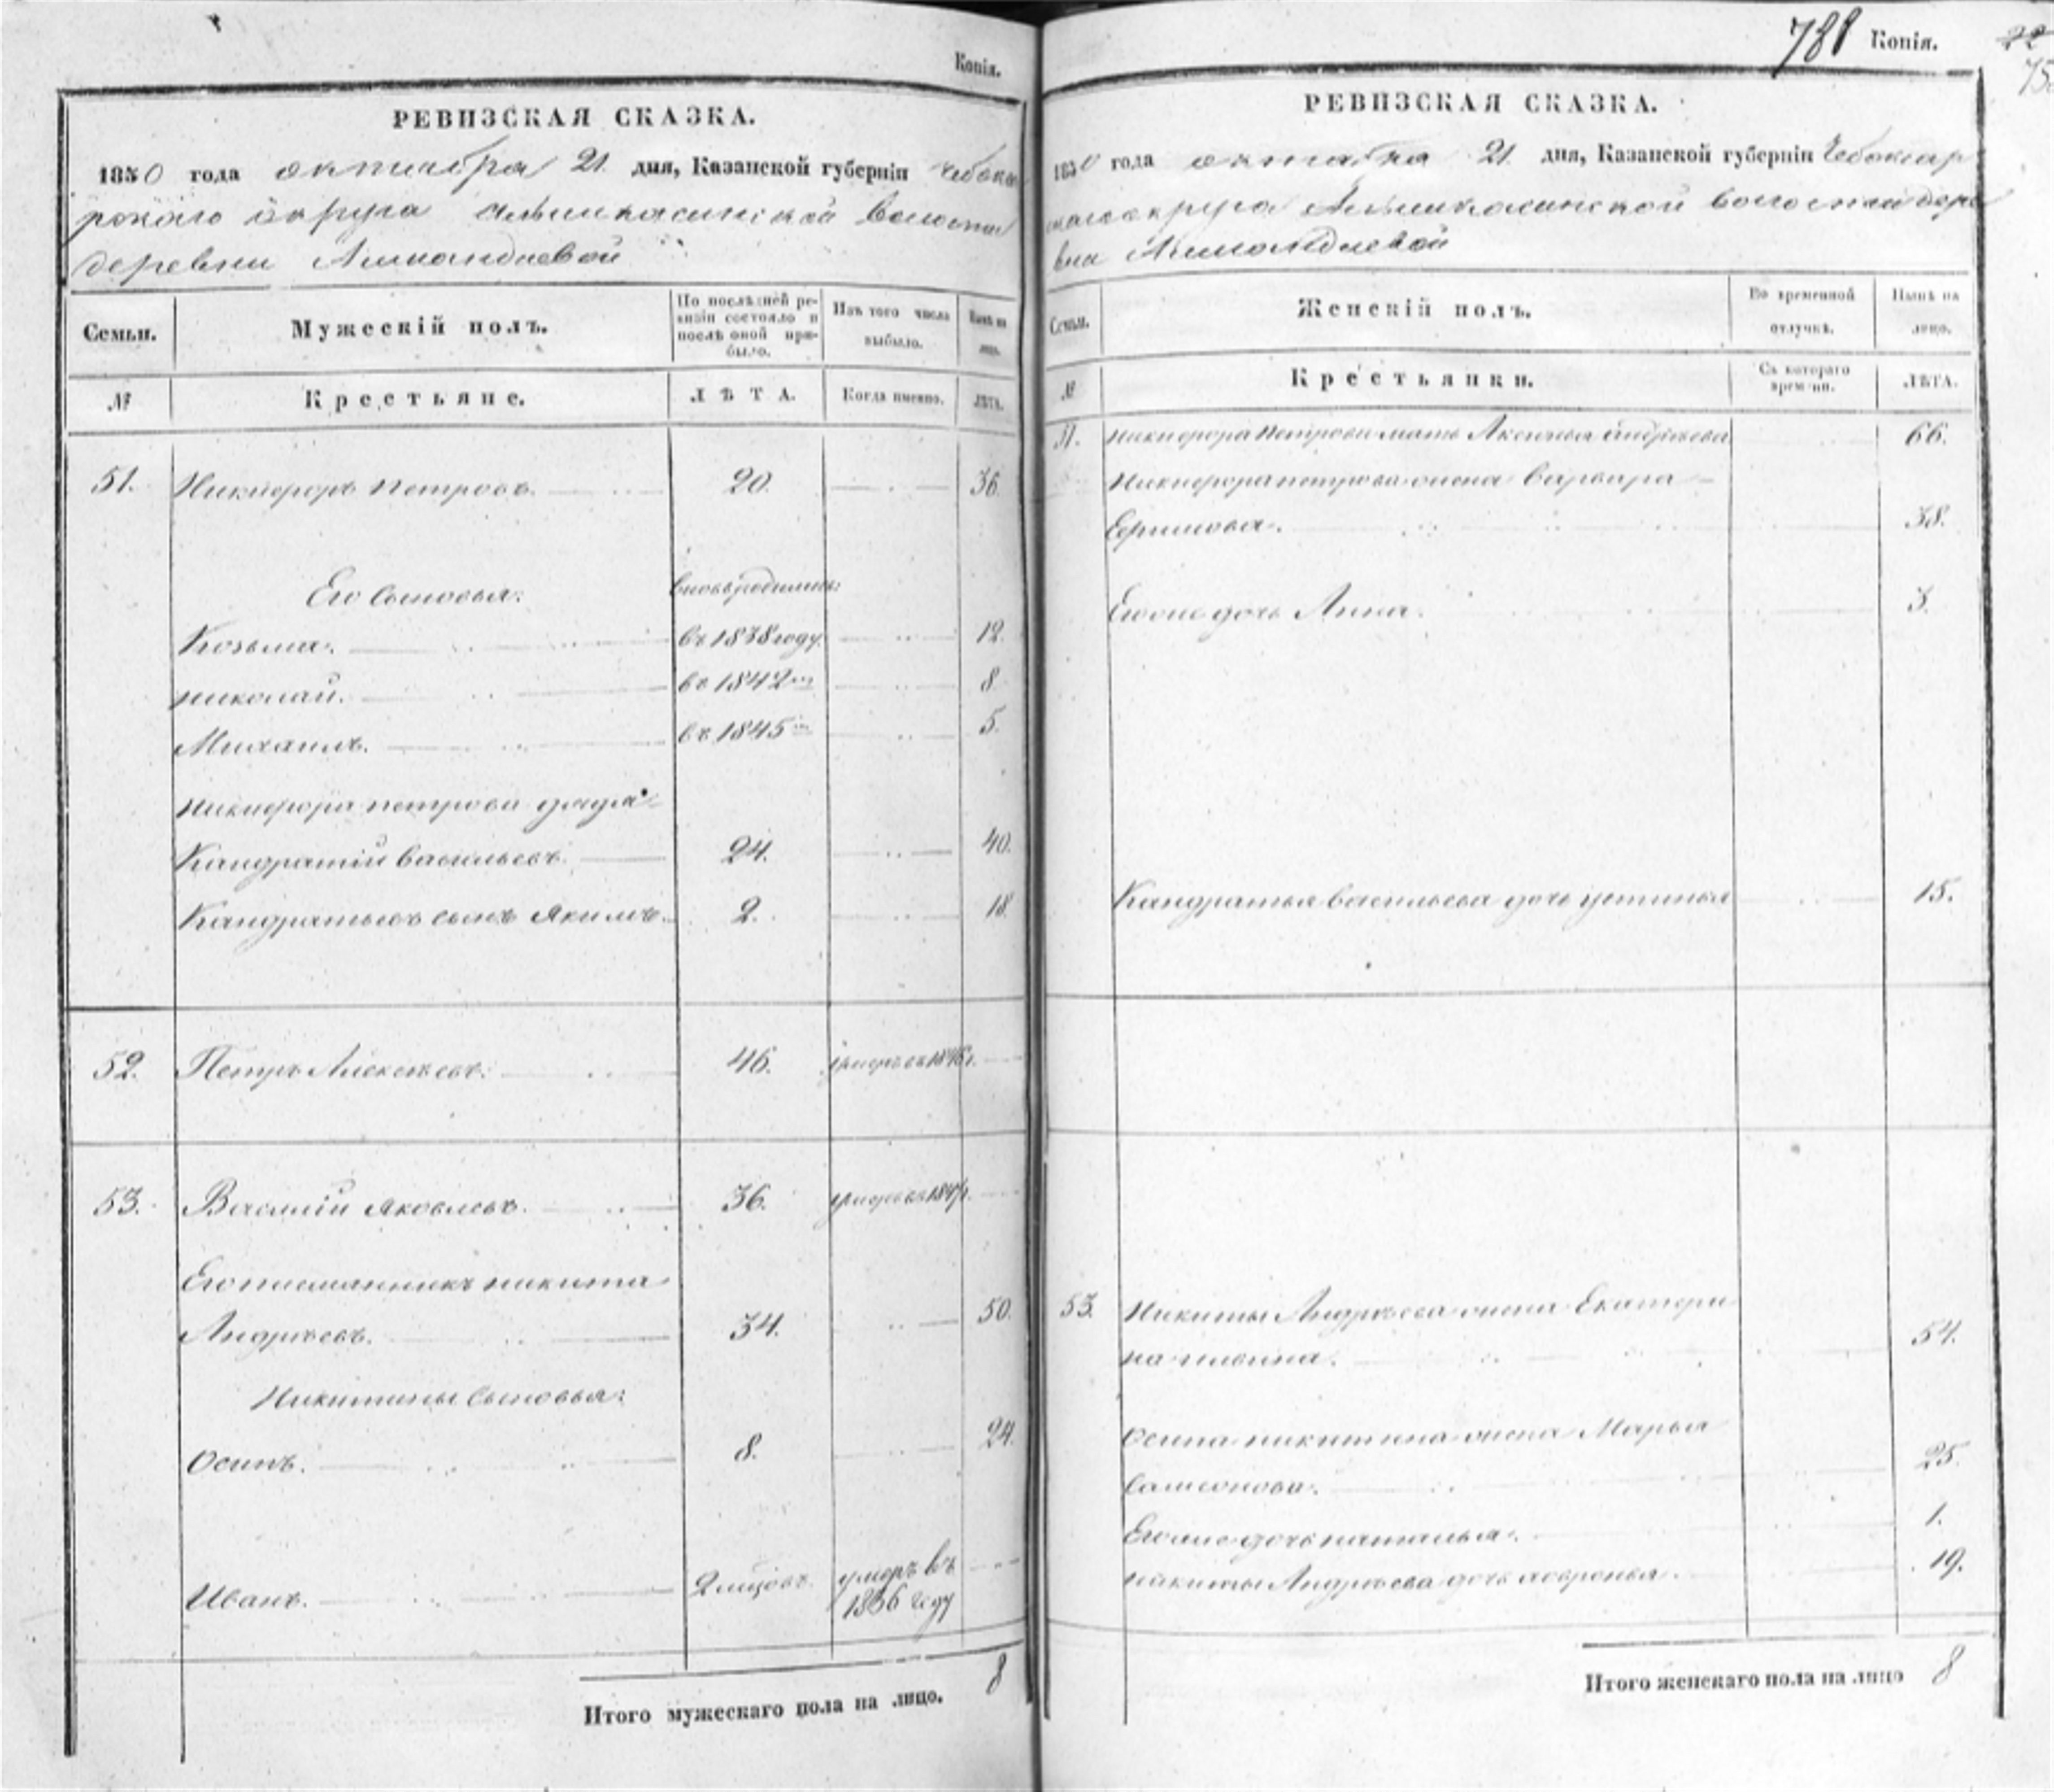 Копія.
РЕВИЗСКАЯ СКАЗКА.
1850 года октября 21 дня, Казанской губерніи Чебокса
рскаго округа Алымкасинской волости
деревни
Семьи.
Мужескій полъ.
По послѣдней ре-
визіи состояло и
послѣ оной при-
было.
Изъ того числа
выбыло.
Нынѣ на
лицо.
№
Крестьяне.
ЛѢТА.
Когда именно.
ЛѢТА.
51. Никифоръ Петровъ. 20. 36.
Его сыновья: вновь родились:
Козьма. въ 1838 году. 12.
Николай. въ 1842 8.
Михаилъ. въ 1845 5.
Никифора Петрова дядя
Кандратій Васильевъ. 24. 40.
Кандратьевъ сынъ Якимъ. 2. 18.
52. Петръ Алексѣевъ. 46.
53. Василій Яковлевъ. 36.
Его племянникъ Никита
Андрѣевъ. 34. 50.
Никитины сыновья:
Осипъ. 8. 24.
Иванъ. умеръ въ
1836 году
Итого мужескаго пола на лицо. 8
788 Копія.
РЕВИЗСКАЯ СКАЗКА.
1850 года октября 21 дня, Казанской губерніи Чебоксар
скаго округа Алымкасинской волости дере
вни
Семьи.
Женскій полъ.
Во временной
отлучкѣ.
Нынѣ на
лицо.
№
Крестьянки.
Съ котораго
времени.
ЛѢТА.
51. Никифора Петрова мать Аксинья Андрѣева 66.
Никифора Петрова жена Варвара
Ефимова. 38.
Его же дочь Анна. 3.
Кандратья Васильева дочь Устинья 15.
53. Никиты Андрѣева жена Екатери
на Ильина. 54.
Осипа Никитина жена Марья
Самсонова. 25.
Его же дочь Наталья. 1.
Никиты Андрѣева дочь Ховронья. 19.
Итого женскаго пола на лицо 8